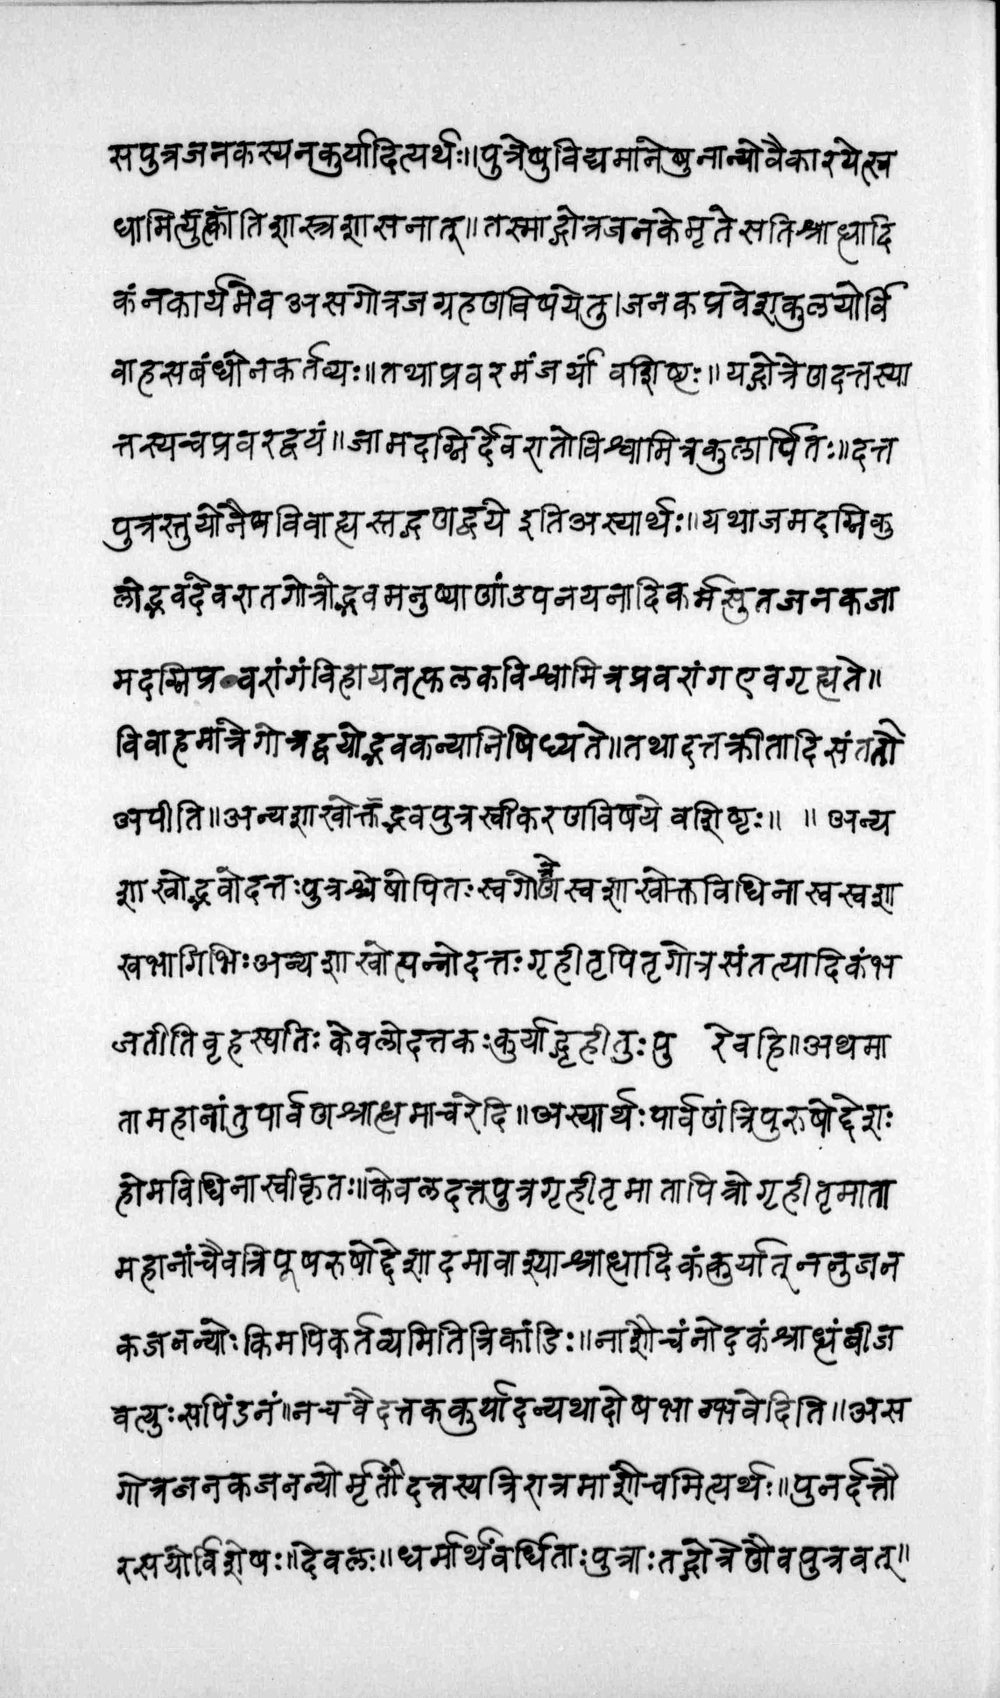 सपुत्रजनकस्यनकुर्यादित्यर्थः॥पुत्रेषुविद्यमानेषुनान्योवैकारयेत्स्व
धामित्युक्तातिशास्त्रशासनात्॥तस्माद्गोत्रजनकेमृतेसतिश्राध्धादि
कंनकार्यमेवअसगोत्रजग्रहणविषयेतु।जनकप्रवेशकुलयोर्वि
वाहसबंधोनकर्तव्यः॥तथाप्रवरमंजर्यां वशिष्ठः॥यद्गोत्रेणदत्तस्या
त्तस्यचप्रवरद्वयं॥जामदग्निर्देवरातोविश्वामित्रकुलार्पितः॥दत्त
पुत्रस्तुयोनैषविवाह्यस्तद्गणद्वये इतिअस्यार्थः॥यथाजमदग्निकु
लोद्भवदेवरातगोत्रोद्भवमनुष्याणांउपनयनादिकर्मसुतजनकजा
मदग्निप्रवरांगंविहायतत्फलकविश्वामित्रप्रवरांगएवगृह्यते॥
विवाहमात्रेगोत्रद्वयोद्भवकन्यानिषिध्यते॥तथादत्तक्रीतादिसंततौ
अपीति॥अन्यशाखोक्तॅद्भवपुत्रस्वीकरणविषये वशिष्ठः॥ ॥अन्य
शाखोद्भवोदत्तःपुत्रश्चेषोपितःस्वगोत्रेणस्वशाखोक्तविधिनास्वस्वशा
खभागिभिःअन्यशाखोत्पन्नोदत्तःगृहीतृपितृगोत्रसंतत्यादिकंभ
जतीतिवृहस्पतिः केवलोदत्तकःकुर्याद्गृहीतुःपु रेवहि॥अथमा
तामहानांतुपार्वणश्राध्धमाचरेदि॥अस्यार्थःपार्वणंत्रिपुरुषोद्देशः
होमविधिनास्वीकृतः॥केवलदत्तपुत्रगृहीतृमातापित्रोगृहीतृमाता
महानांचैवत्रिपूषरुषोद्देशादमावाश्याश्राध्धादिकंकुर्यात् ननुजन
कजनन्योःकिमपिकर्तव्यमितित्रिकांडिः॥नाशौचंनोदकंश्राध्धंबीज
वत्युःसपिंडनं॥नचवैदत्तककुर्यादन्यथादोषभाग्भवेदिति॥अस
गोत्रजनकजनन्योर्मृतौदत्तस्यत्रिरात्रमाशौचमित्यर्थः॥पुनर्दत्तौ
रसयोर्विशेषः॥देवलः॥धर्मार्थंवर्धिताःपुत्राःतद्गोत्रेणैवपुत्रवत्॥